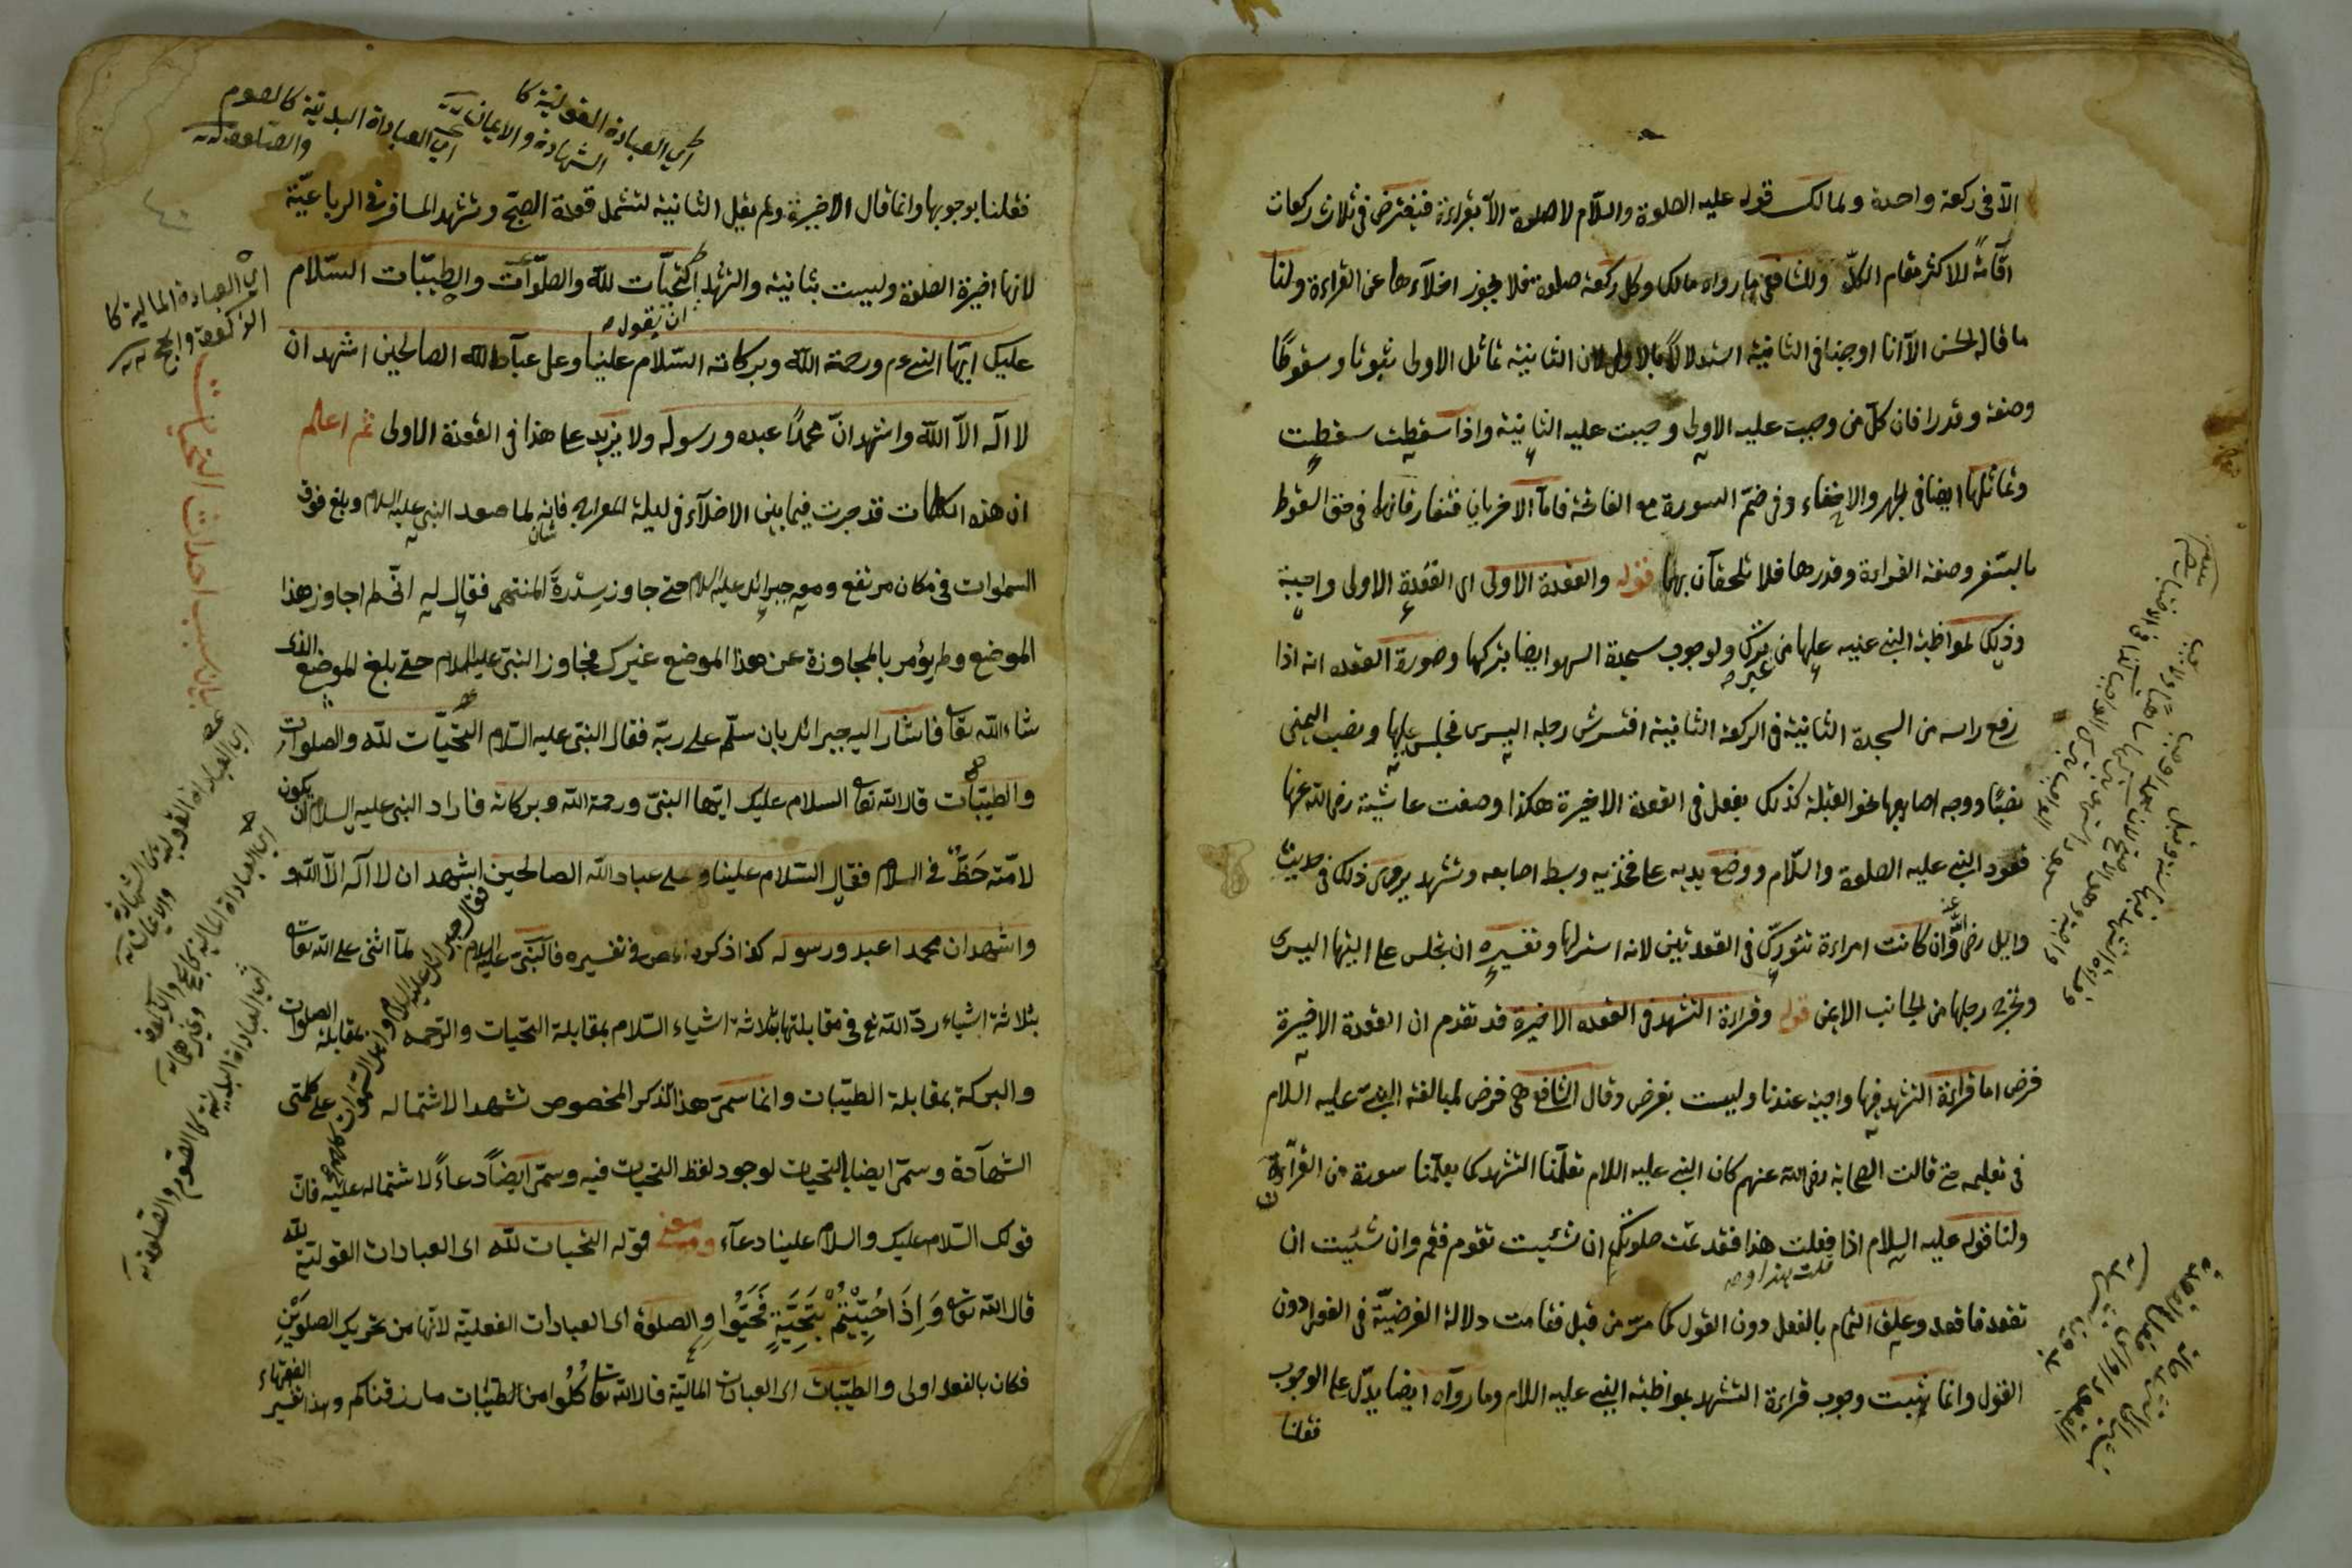 الّا فى ركعة واحدة ولمالك قوله عليه الصلوة والسّلام لا صلوة الّا بقراءة فيفترض فى ثلاث ركعات
اقامةً للاكثر مقام الكلّ وللشافعى ما رواه مالك وكل ركعة صلوة فلا يجوز اخلآءها عن القراءة ولنا
ما قاله الحسن الّا انا اوجبنا فى الثانية استدلالاً بالاولى لان الثانية تماثل الاولى ثبوتا وسقوطًا
وصفة وقدرا فان كلّ من وجبت عليه الاولى وجبت عليه الثانية واذا سقطت سقطت
وتماثلها ايضا فى الجهر والاخفاء وفى ضمّ السورة مع الفاتحة فامّا الاخريان فتفارقانها فى حق السقوط
بالسّفر وصفة القراءة وقدرها فلا تلحقان بهما قوله والقعدة الاولى اى القعدة الاولى واجبة
وذلك لمواظبة النبى عليه عليها من غير ترك ولوجوب سجدة السهو ايضا بتركها وصورة القعده انه اذا
رفع راسه من السجدة الثانية فى الركعة الثانية افترش رجله اليسرى فجلس عليها ونصب اليمنى
نصبًا ووجه اصابعها نحو القبلة كذلك يفعل فى القعدة الاخيرة هكذا وصفت عايشة رضى الله عنها
قعود النبى عليه الصلوة والسّلام ووضع يديه على فخذيه وبسط اصابعه وتشهد يروى ذلك فى حديث
وايل رضى الله وان كانت امراءة تتورّك فى القعدتين لانه استر لها وتفسيره ان تجلس على اليتها اليسرى
وتخرج رجلها من الجانب الايمن قوله وقراءة التشهد فى القعده الاخيرة قد تقدم ان القعدة الاخيرة
فرض اما قراءة التشهد فيها واجبة عندنا وليست بفرض وقال الشافعى هى فرض لمبالغة النبى عليه السلام
فى تعليمه حتى قالت الصحابة رضى الله عنهم كان النبى عليه السلام يعلّمنا التشهد كما يعلّمنا سورة من القرآن
ولنا قوله عليه السلام اذا قلت هذا او فعلت هذا فقد تمت صلوتك ان شئيت تقوم فقم وان شئيت ان
تقعد فاقعد وعلق التمام بالفعل دون القول كما مرّ من قبل فقامت دلالة الفرضيّة فى الفعل دون
القول وانما يثبت وجوب قراءة التشهد بمواظبة النبى عليه السلام وما رواه ايضا يدّل على الوجوب
فقلنا
اى العبادة القولية كا
الشهادة والايمان
اى العباداة البدنية كالصوم
والصلوة
فقلنا بوجوبها وانما قال الاخيرة ولم يقل الثانية لتشمل قعدة الصبح وتشهد المسافر فى الرباعيّة
لانها اخيرة الصلوة وليست بثانية والتشهد ان يقول التحيّات لله والصلوّات والطيبّات السّلام
عليك ايّها النبى ورحمة الله وبركاته السّلام علينا وعلى عباد الله الصالحين اشهد ان
لا اله الّا الله واشهد انّ محمدًا عبده ورسوله ولا يزيد على هذا فى القعدة الاولى ثم اعلم
ان هذه الكلمات قد جرت فيما بين الاخلآء فى ليلة المعراج فانه لما صعد النبى عليه السلام وبلغ فوق
السموات فى مكان مرتفع ومعه جبرائل عليه السلام حتى جاوز سدرة المنتهى فقال له انّى لم اجاوز هذا
الموضع ولم يؤمر بالمجاوزة عن هذا الموضع غيرك فجاوز النبى عليه السلام حتى بلغ الموضع الذى
شاء الله تعالى فاشار اليه جبرائل بان سلّم على ربّه فقال النبى عليه السّلام التحيّات لله والصلوات
والطيبّات قال الله تعالى السلام عليك ايّها النبىّ ورحمة الله وبركاته فاراد النبى عليه السلام ان يكون
لامّته حَظٌّ فى السلام فقال السّلام علينا وعلى عباد الله الصالحين اشهد ان لا اله الّا الله و
واشهد ان محمدا عبد ورسوله كذا ذكره فى تفسيره فالنبىّ عليه السلام لمّا اثنى على الله تعالى
بثلاثة اشياء ردّ الله تع فى مقابلتها بثلاثة اشياء السّلام بمقابلة التحيّات والرحمه بمقابلة الصلوات
والبركة بمقابلة الطيّبات وانما سمّى هذا الذكر المخصوص تشهدا لاشتماله على كلمتى
الشهآدة وسمّى ايضا بالتحيات لوجود لفظ التحيات فيه وسمّى ايضاً دعاءً لاشتماله عليه فانّ
قولك السّلام عليك والسلام علينا دعآء ومعنى قوله التحيات لله اى العبادات القولية لله
قال الله تعالى وَاِذَا حُيِّيْتُمْ بِتَحِيَّةٍ فَحَيُّوا والصلوة اى العبادات الفعلية لانّها من تحريك الصلوَيْنِ
فكان بالفعل اولى والطيّبات اى العبادات المالية قال الله تعالى كُلُوا من الطيّبات ما رزقناكم وهذا تفسير الفقهاء
اى العبادة المالية كا
الزكوة والحج
بيان سبب احداث التحيات
فقال جبرائل عليه السلام واهل السموات كلهم
اى العباداة القولية
والايمان
اى العباداة المالية كالحج والزكوة
وغيرهما
اى العباداة البدنية كا الصوم والصلوة